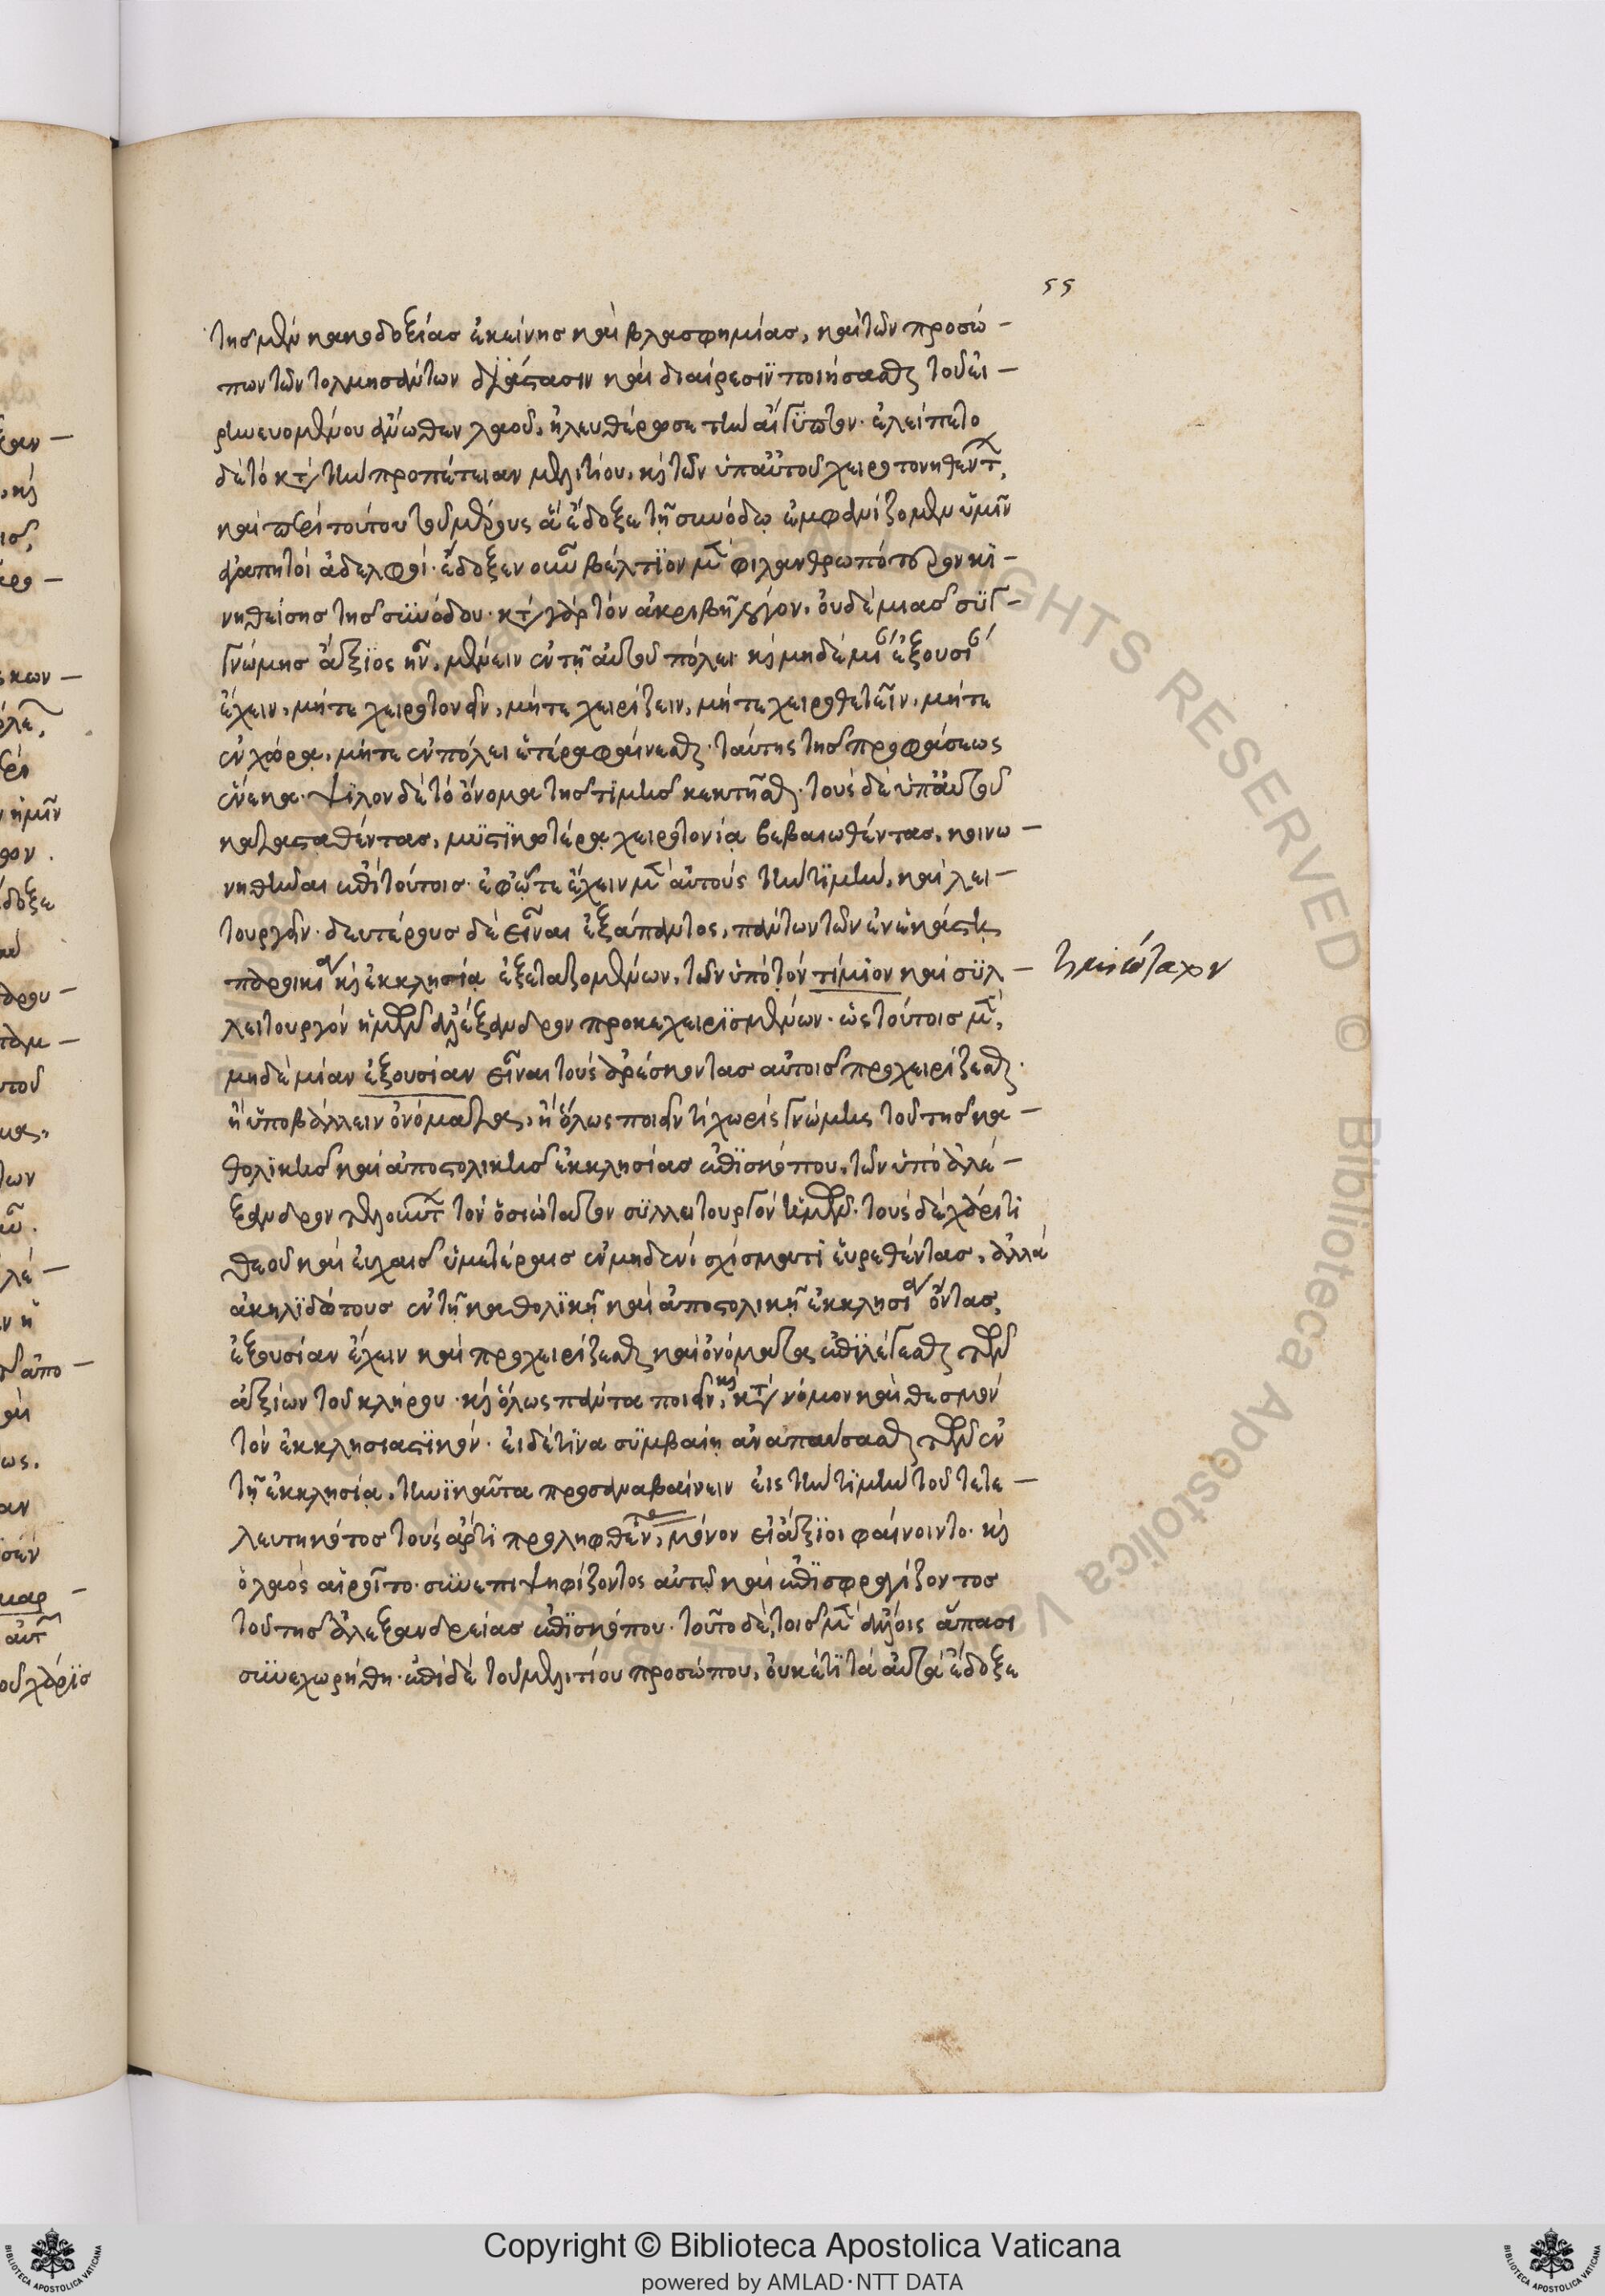 55
τῆς μὲν κακοδοξίας ἐκείνης καὶ βλασφημίας, καὶ τῶν προσώ-
πων τῶν τολμησάντων διάστασιν καὶ διαίρεσϊν ποιήσασθαι τοῦ εἰ-
ρηνευομένου ἄνωθεν λαοῦ, ἠλευθέρωσε τὴν αἴγϋπτον. ἐλείπετο
δὲ τὸ κατὰ τὴν προπέτειαν μελιτίου, καὶ τῶν ὑπ' αὐτοῦ χειροτονηθέντων,
καὶ περὶ τούτου τοῦ μέρους ἃ ἔδοξε τῇ συνόδῳ ἐμφανίζομεν ὑμῖν
ἀγαπητοὶ ἀδελφοί. ἔδοξεν οὖν βέλτϊον μετὰ φιλανθρωπότερον κϊ-
νηθείσης τῆς σϋνόδου. κατὰ γὰρ τὸν ἀκριβῆ λόγον, οὐδὲ μιᾶς σϋγ-
γνώμης ἄξϊος ἦν, μένειν ἐν τῇ αὐτοῦ πόλει καὶ μηδὲ μίαν ἐξουσίαν
ἔχειν, μήτε χειροτονεῖν, μήτε χειρίζειν, μήτε χειροθετεῖν, μήτε
ἐν χώρᾳ, μήτε ἐν πόλει ἑτέρᾳ φαίνεσθαι ταύτης τῆς προφάσεως
ἕνεκα. ψϊλὸν δὲ τὸ ὄνομα τῆς τϊμῆς κεκτῆσθαι. τοὺς δὲ ὑπ' αὐτοῦ
κατασταθέντας, μϋστϊκωτέρᾳ χειροτονίᾳ βεβαιωθέντας, κοινω-
νηθῆναι ἐπὶ τούτοις. ἐφ' ᾧ τε ἔχειν μετ' αὐτοὺς τὴν τϊμὴν, καὶ λει-
τουργεῖν. δευτέρους δὲ εἶναι ἐξάπαντος, πάντων τῶν ἐν ἑκάστῃ
παροικίᾳ καὶ ἐκκλησίᾳ ἐξεταζομένων, τῶν ὑπὸ τὸν τίμιον καὶ σϋλ-
λειτουργὸν ἡμῶν ἀλέξανδρον προκεχειρϊσμένων. ὡς τούτοις μὲν,
μηδὲ μίαν ἐξουσίαν εἶναι τοὺς ἀρέσκοντας αὐτοῖς προχειρίζεσθαι.
ἢ ὑποβάλλειν ὀνόματα, ἢ ὅλως ποιεῖν τὶ χωρὶς γνώμης τοῦ τῆς κα-
θολϊκῆς καὶ ἀποστολικῆς ἐκκλησίας ἐπϊσκόπου, τῶν ὑπὸ ἀλέ-
ξανδρον τὸν ὁσιώτατον σϋλλειτουργὸν ἡμῶν. τοὺς δὲ χάριτι
θεοῦ καὶ εὐχαῖς ὑμετέραις ἐν μηδενὶ σχίσματϊ εὑρεθέντας, ἀλλὰ
ἀκηλϊδώτους ἐν τῇ καθολϊκῇ καὶ ἀποστολικῇ ἐκκλησίᾳ ὄντας,
ἐξουσίαν ἔχειν καὶ προχειρίζεσθαι καὶ ὀνόματα ἐπϊλέγεσθαι τῶν
ἀξίων τοῦ κλήρου. καὶ ὅλως πάντα ποιεῖν, καὶ κατὰ νόμον καὶ θεσμὸν
τὸν ἐκκλησιαστϊκόν. εἰ δὲ τϊνα σϋμβαίη ἀναπαύσασθαι τῶν ἐν
τῇ ἐκκλησίᾳ, τηνϊκαῦτα προσαναβαίνειν εἰς τὴν τϊμὴν τοῦ τετε-
λευτηκότος τοὺς ἄρτϊ προληφθέντας, μόνον εἰ ἄξϊοι φαίνοιντο. καὶ
ὁ λαὸς αἱροῖτο. σϋνεπιψηφίζοντος αὐτῷ καὶ ἐπϊσφραγίζοντος
τοῦ τῆς ἀλεξανδρείας ἐπϊσκόπου. τοῦτο δὲ, τοῖς μὲν ἄλλοις ἅπασι
σϋνεχωρήθη. ἐπὶ δὲ τοῦ μελιτίου προσώπου, οὐκέτϊ τὰ αὐτὰ ἔδοξε